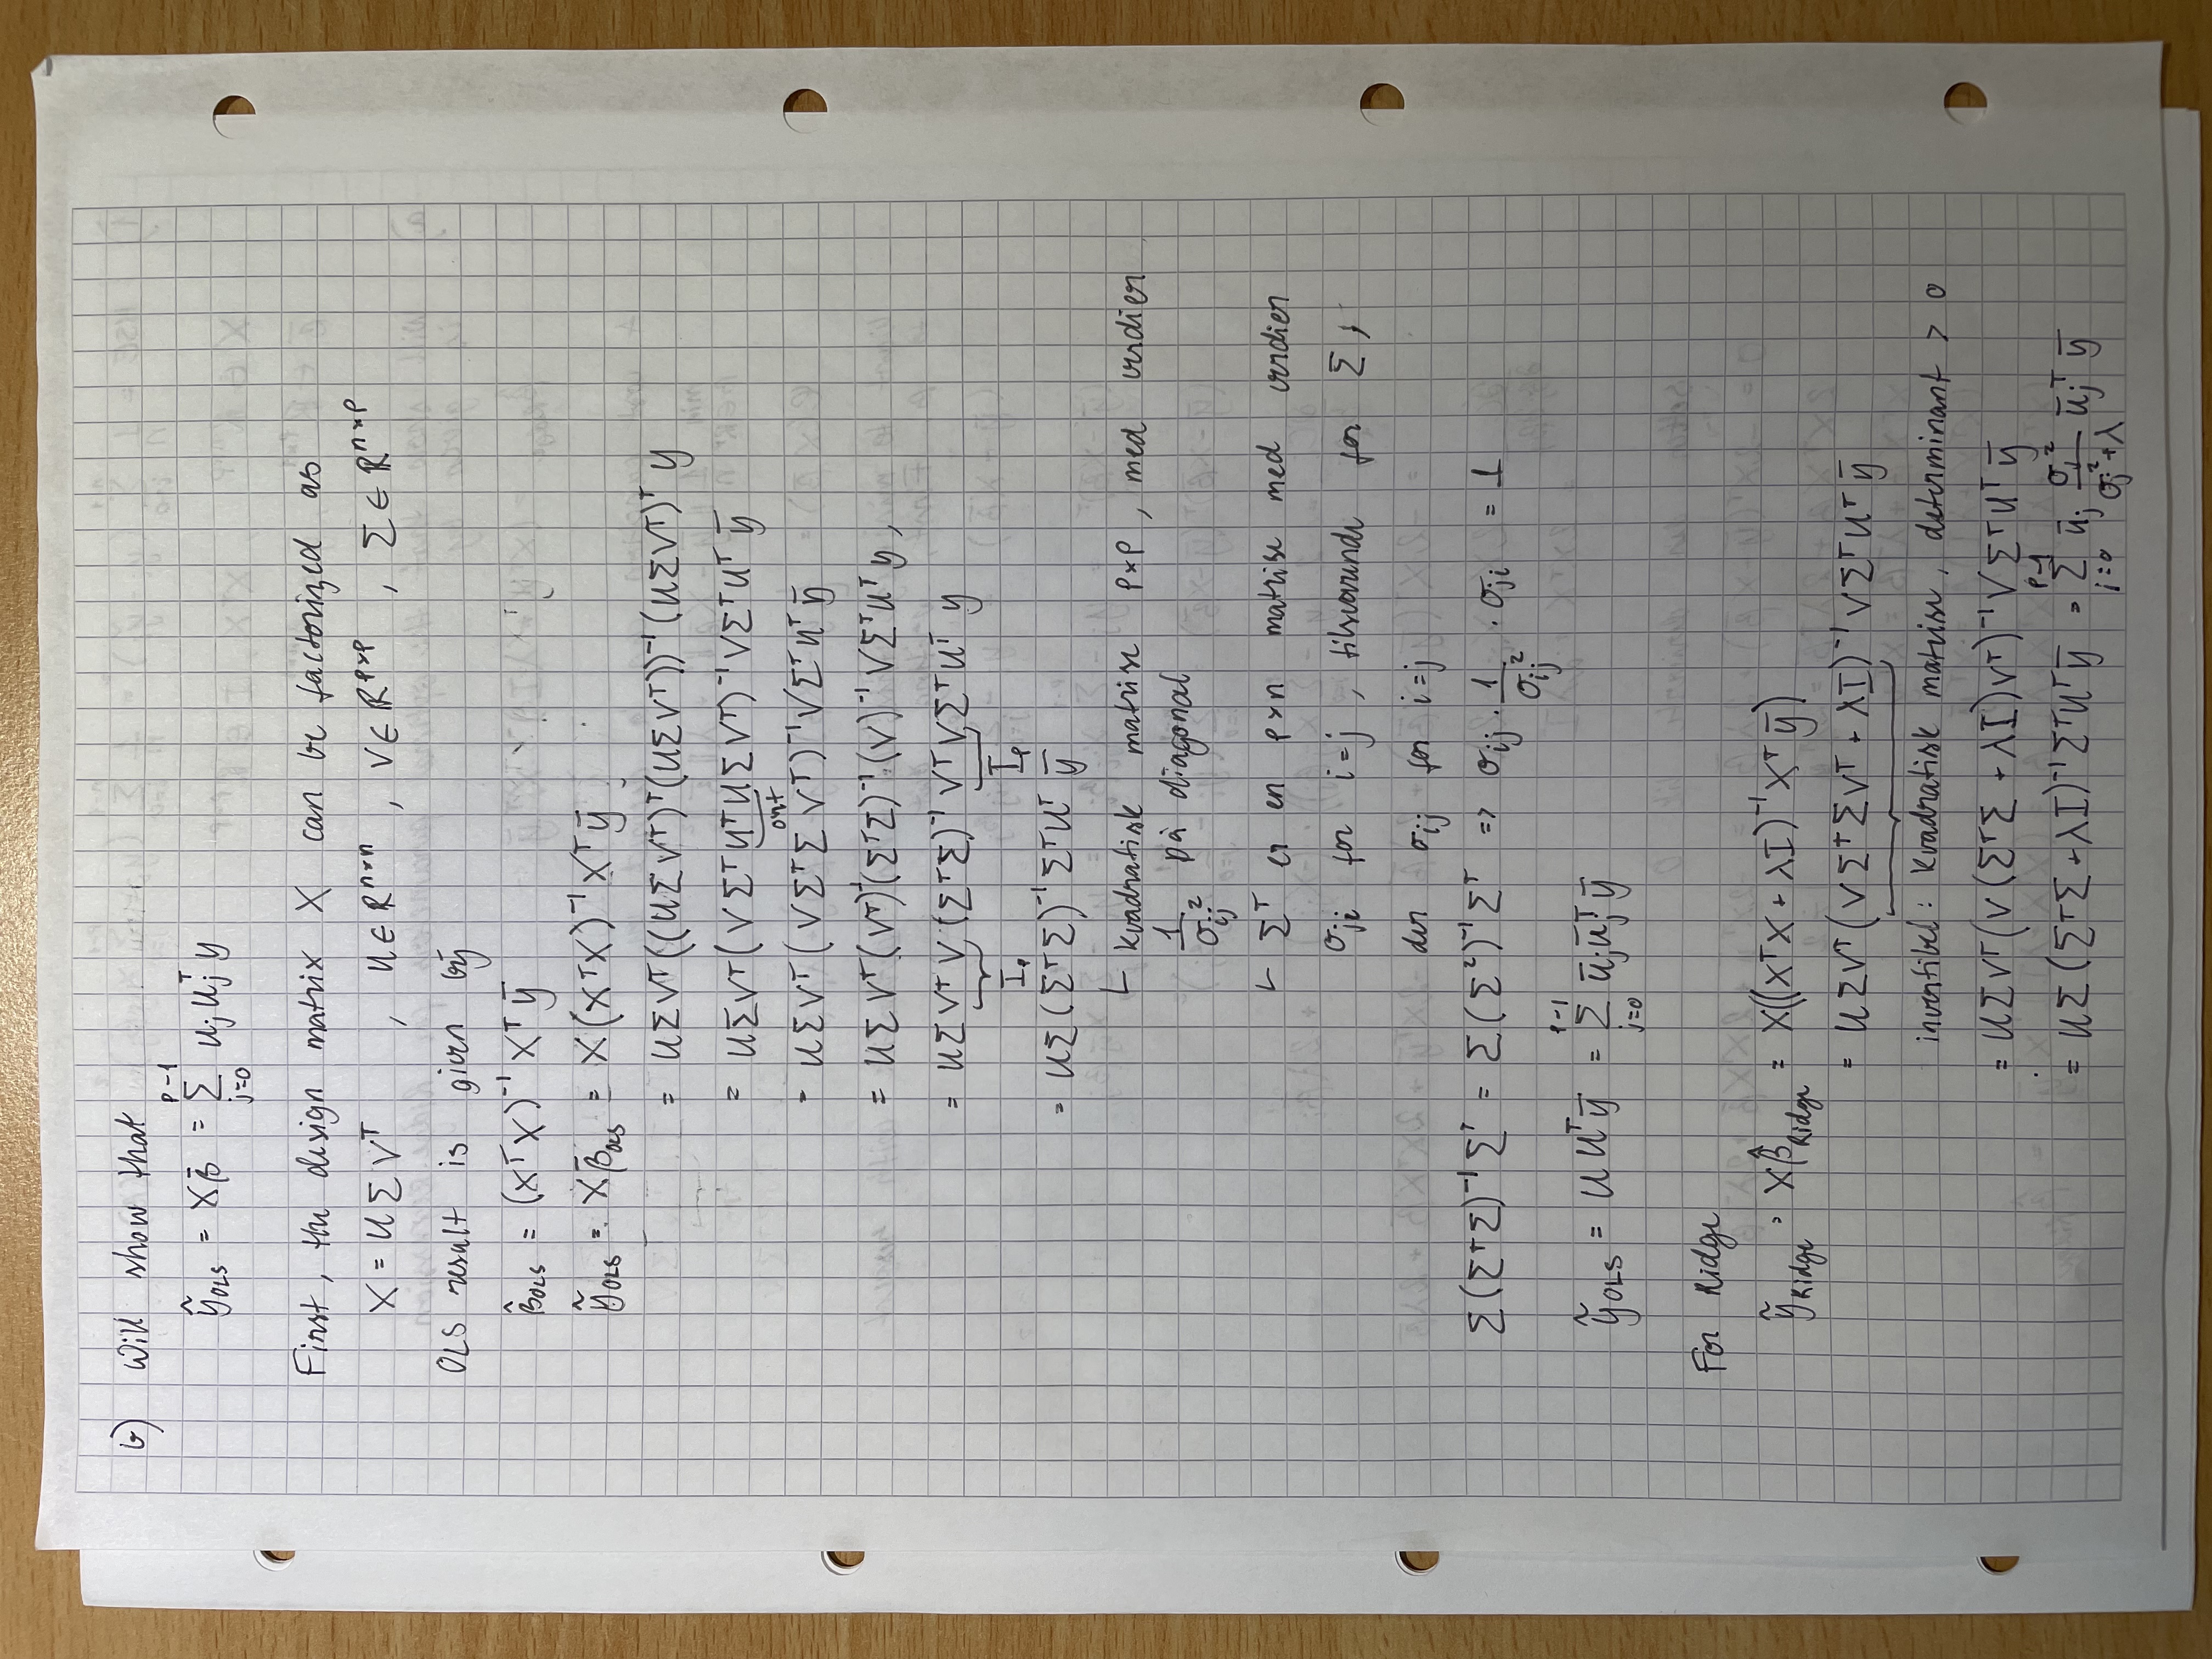 b) Will show that
ŷ_OLS = Xβ̄ = Σ_{j=0}^{p-1} u_j u_j^T y
First, the design matrix X can be factorized as
X = UΣV^T , U ∈ R^{n×n} , V ∈ R^{p×p} , Σ ∈ R^{n×p}
OLS result is given by
β̂_OLS = (X^T X)^{-1} X^T ȳ
ỹ_OLS = Xβ̄_OLS = X(X^T X)^{-1} X^T ȳ
= UΣV^T((UΣV^T)^T(UΣV^T))^{-1}(UΣV^T)^T y
= UΣV^T(VΣ^T U^T UΣV^T)^{-1} VΣ^T U^T ȳ
ort
= UΣV^T(VΣ^TΣV^T)^{-1} VΣ^T U^T ȳ
= UΣV^T(V^T)^{-1}(Σ^TΣ)^{-1}(V)^{-1} VΣ^T U^T y,
= UΣ V^T V (Σ^TΣ)^{-1} V^T V Σ^T U^T y
I_p I_p
= UΣ(Σ^TΣ)^{-1} Σ^T U^T ȳ
∟ kvadratisk matrise p×p, med verdier
1/σ_ij^2 på diagonal
∟ Σ^T er en p×n matrise med verdier
σ_ji for i=j, tilsvarende for Σ,
der σ_ij for i=j
Σ(Σ^TΣ)^{-1}Σ^T = Σ(Σ^2)^{-1}Σ^T => σ_ij · 1/σ_ij^2 · σ_ji = 1
ỹ_OLS = U U^T ȳ = Σ_{j=0}^{p-1} ū_j ū_j^T ȳ
For Ridge
ỹ_Ridge = Xβ̂_Ridge = X((X^T X + λI)^{-1} X^T ȳ)
= UΣV^T(VΣ^TΣV^T + λI)^{-1} VΣ^T U^T ȳ
invertibel: kvadratisk matrise, determinant > 0
= UΣV^T(V(Σ^TΣ + λI)V^T)^{-1} VΣ^T U^T ȳ
= UΣ(Σ^TΣ + λI)^{-1} Σ^T U^T ȳ = Σ_{j=0}^{p-1} ū_j σ_j^2/(σ_j^2+λ) ū_j^T ȳ